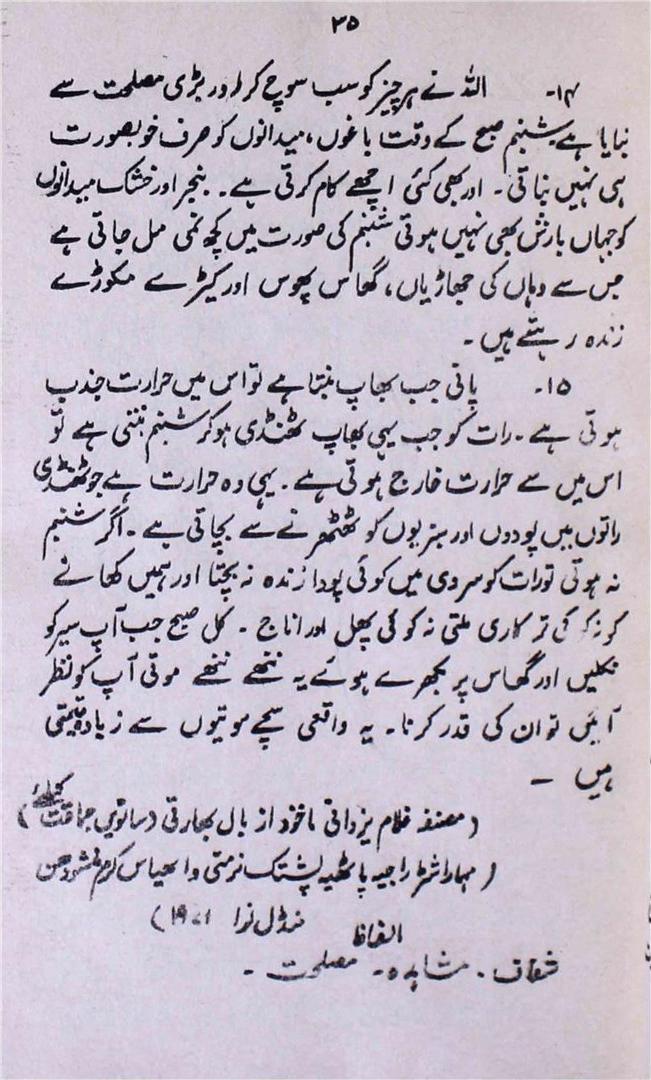 ۳۵
۱۴۔ اللہ نے ہر چیز کو سب سوچ کر اور بڑی مصلحت سے
بنایا ہے۔ شبنم صبح کے وقت باغوں، میدانوں کو صرف خوبصورت
ہی نہیں بناتی۔ اور بھی کئی اچھے کام کرتی ہے۔ بنجر اور خشک میدانوں
کو جہاں بارش بھی نہیں ہوتی شبنم کی صورت میں کچھ نمی مل جاتی ہے
جس سے وہاں کی جھاڑیاں، گھاس پھوس اور کیڑے مکوڑے
زندہ رہتے ہیں۔
۱۵۔ پانی جب بھاپ بنتا ہے تو اس میں حرارت جذب
ہوتی ہے۔ رات کو جب یہی بھاپ ٹھنڈی ہو کر شبنم بنتی ہے تو
اس میں سے حرارت خارج ہوتی ہے۔ یہی وہ حرارت ہے جو ٹھنڈی
راتوں میں پودوں اور سبزیوں کو ٹھٹھرنے سے بچاتی ہے۔ اگر شبنم
نہ ہوتی تو رات کو سردی میں کوئی پودا زندہ نہ بچتا اور ہمیں کھانے
کو نہ کوئی ترکاری ملتی نہ کوئی پھل اور اناج۔ کل صبح جب آپ سیر کو
نکلیں اور گھاس پر بکھرے ہوئے یہ ننھے ننھے موتی آپ کو نظر
آئیں تو ان کی قدر کرنا۔ یہ واقعی سچے موتیوں سے زیادہ قیمتی
ہیں ۔
(مصنفہ غلام یزدانی ماخوذ از بال بھارتی (ساتویں جماعت کیلئے)
(مہاراشٹر راجیہ پاٹھیہ پشتک نرمتی وا بھیاس کرم سنشودھن
منڈل نوا ۱۹۷۱)
الفاظ
شفاف۔ مشاہدہ۔ مصلحت۔